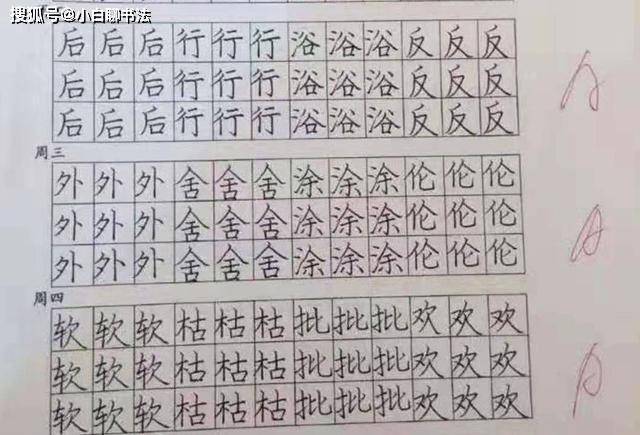 搜狐号@小白聊书法
后后后行行行浴浴浴反反反
后后后行行行浴浴浴反反反
后后后行行行浴浴浴反反反
A
周三
外外外舍舍舍涂涂涂伦伦伦
外外外舍舍舍涂涂涂伦伦伦
外外外舍舍舍涂涂涂伦伦伦
A
周四
软软软枯枯枯批批批欢欢欢
软软软枯枯枯批批批欢欢欢
软软软枯枯枯批批批欢欢欢
A